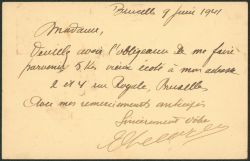 Bruxelles 9 Juin 1941
Madame,
Veuillez avoir l'obligeance de me faire
parvenir 5 Kg vieux à mon adresse
2 et 4 rue Royale, Bruxelles
Avec mes remerciements anticipés
Sincèrement vôtre